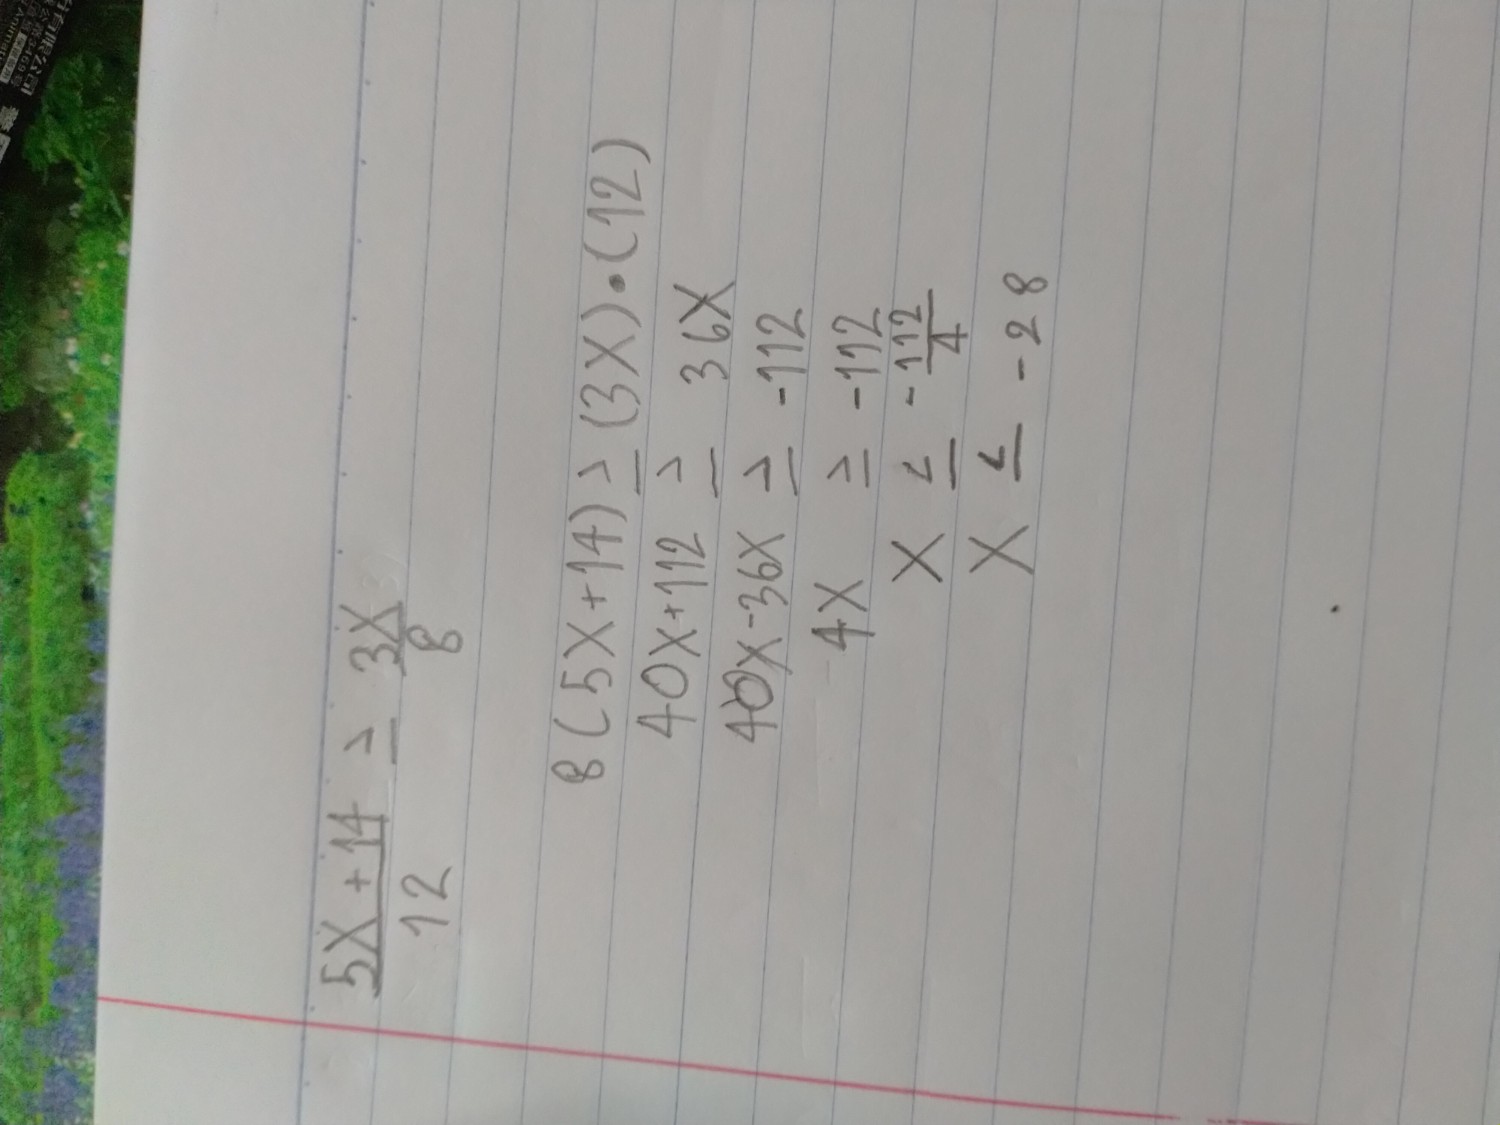 5X+14 ≥ 3X
12 8
8(5X+14) ≥ (3X)•(12)
40X+112 ≥ 36X
40X-36X ≥ -112
4X ≥ -112
X ≤ -112
4
X ≤ -28